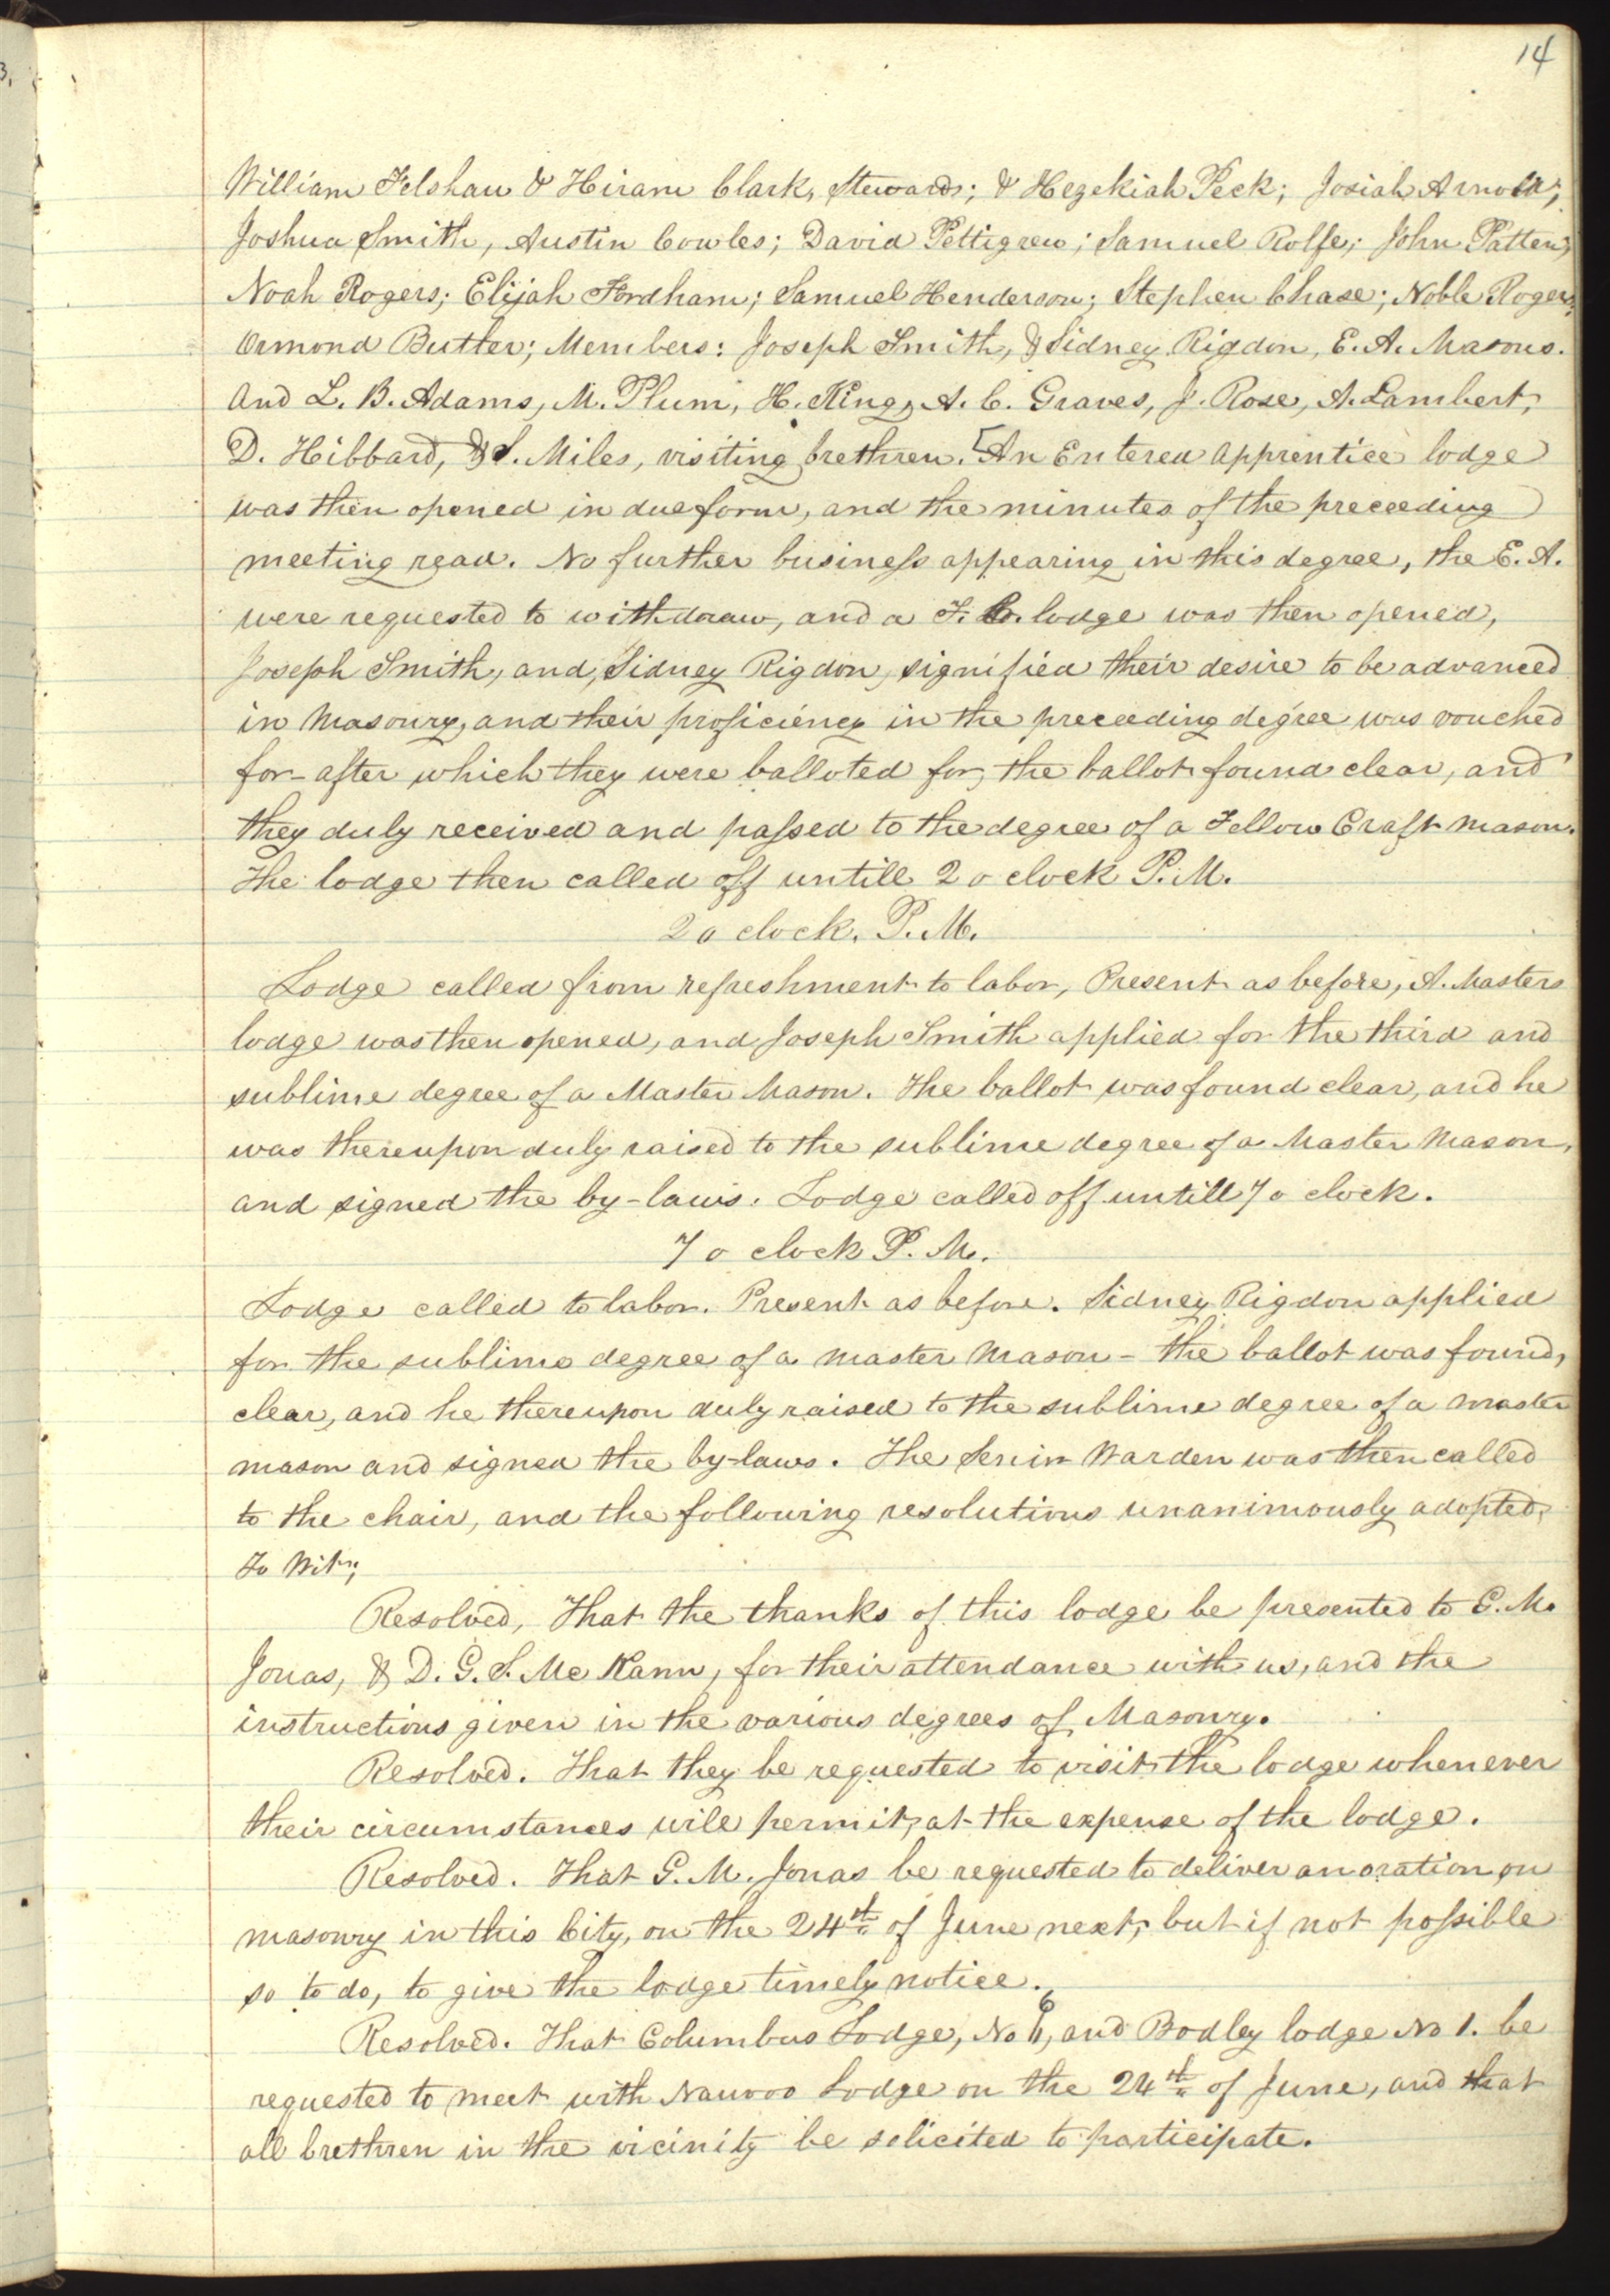 14
William Felshaw & Hiram Clark, Stewards; & Hezekiah Peck; Josiah Arnold;
Joshua Smith, Austin Cowles; David Pettigrew; Samuel Rolfe; John Patten;
Noah Rogers; Elijah Fordham; Samuel Henderson; Stephen Chase; Noble Rogers;
Ormond Butler; Members: Joseph Smith, & Sidney Rigdon, E. A. Masons.
and L. B. Adams, M. Plum, H. King, A. C. Graves, J. Rose, A. Lambert,
D. Hibbard, & S. Miles, visiting brethren. [An Entered apprentice lodge
was then opened in due form, and the minutes of the preceeding
meeting read. No further business appearing in this degree, the E. A.
were requested to withdraw, and a F. C. lodge was then opened,
Joseph Smith, and, Sidney Rigdon, signified their desire to be advanced
in Masonry, and their proficiency in the preceeding degree was vouched
for - after which they were balloted for, the ballot found clear, and
they duly received and passed to the degree of a Fellow Craft mason.
The lodge then called off untill 2 o clock P.M.
2 o clock. P.M.
Lodge called from refreshment to labor, Present as before, A. Masters
lodge was then opened, and Joseph Smith applied for the third and
sublime degree of a Master Mason. The ballot was found clear, and he
was thereupon duly raised to the sublime degree of a Master Mason,
and signed the by-laws. Lodge called off untill 7 o clock.
7 o clock P. M.
Lodge called to labor. Present as before. Sidney Rigdon applied
for the sublime degree of a master Mason - the ballot was found,
clear, and he thereupon duly raised to the sublime degree of a master
mason and signed the by-laws. The Senior Warden was then called
to the chair, and the following resolutions unanimously adopted,
To Wit;
Resolved, That the thanks of this lodge be presented to G. M.
Jonas, & D. G. S. Mc Kann, for their attendance with us, and the
instructions given in the various degrees of Masonry.
Resolved. That they be requested to visit the lodge whenever
their circumstances will permit, at the expense of the lodge.
Resolved. That G. M. Jonas be requested to deliver an oration on
masonry in this City, on the 24th of June next, but if not possible
so to do, to give the lodge timely notice.
Resolved. That Columbus Lodge, No 6, and Bodley lodge No 1. be
requested to meet with Nauvoo Lodge on the 24th of June, and that
all brethren in the vicinity be solicited to participate.